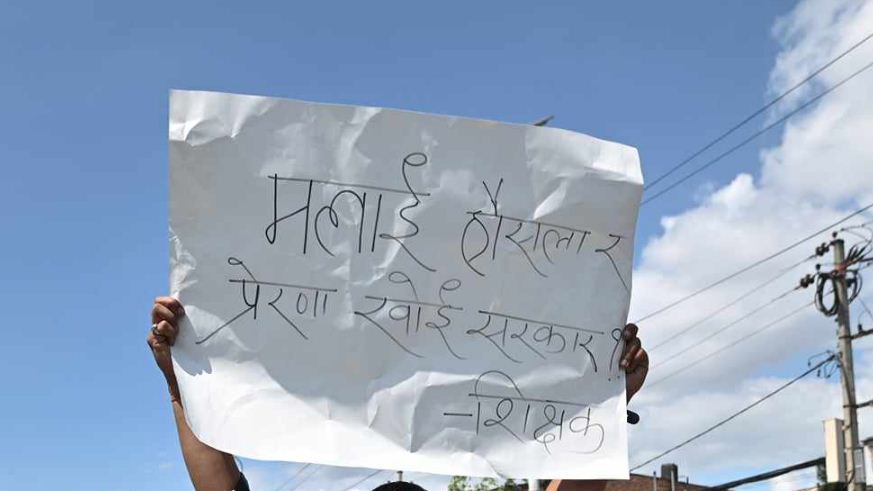 मलाई हौसला र
प्रेरणा खोई सरकार !!
- शिक्षक